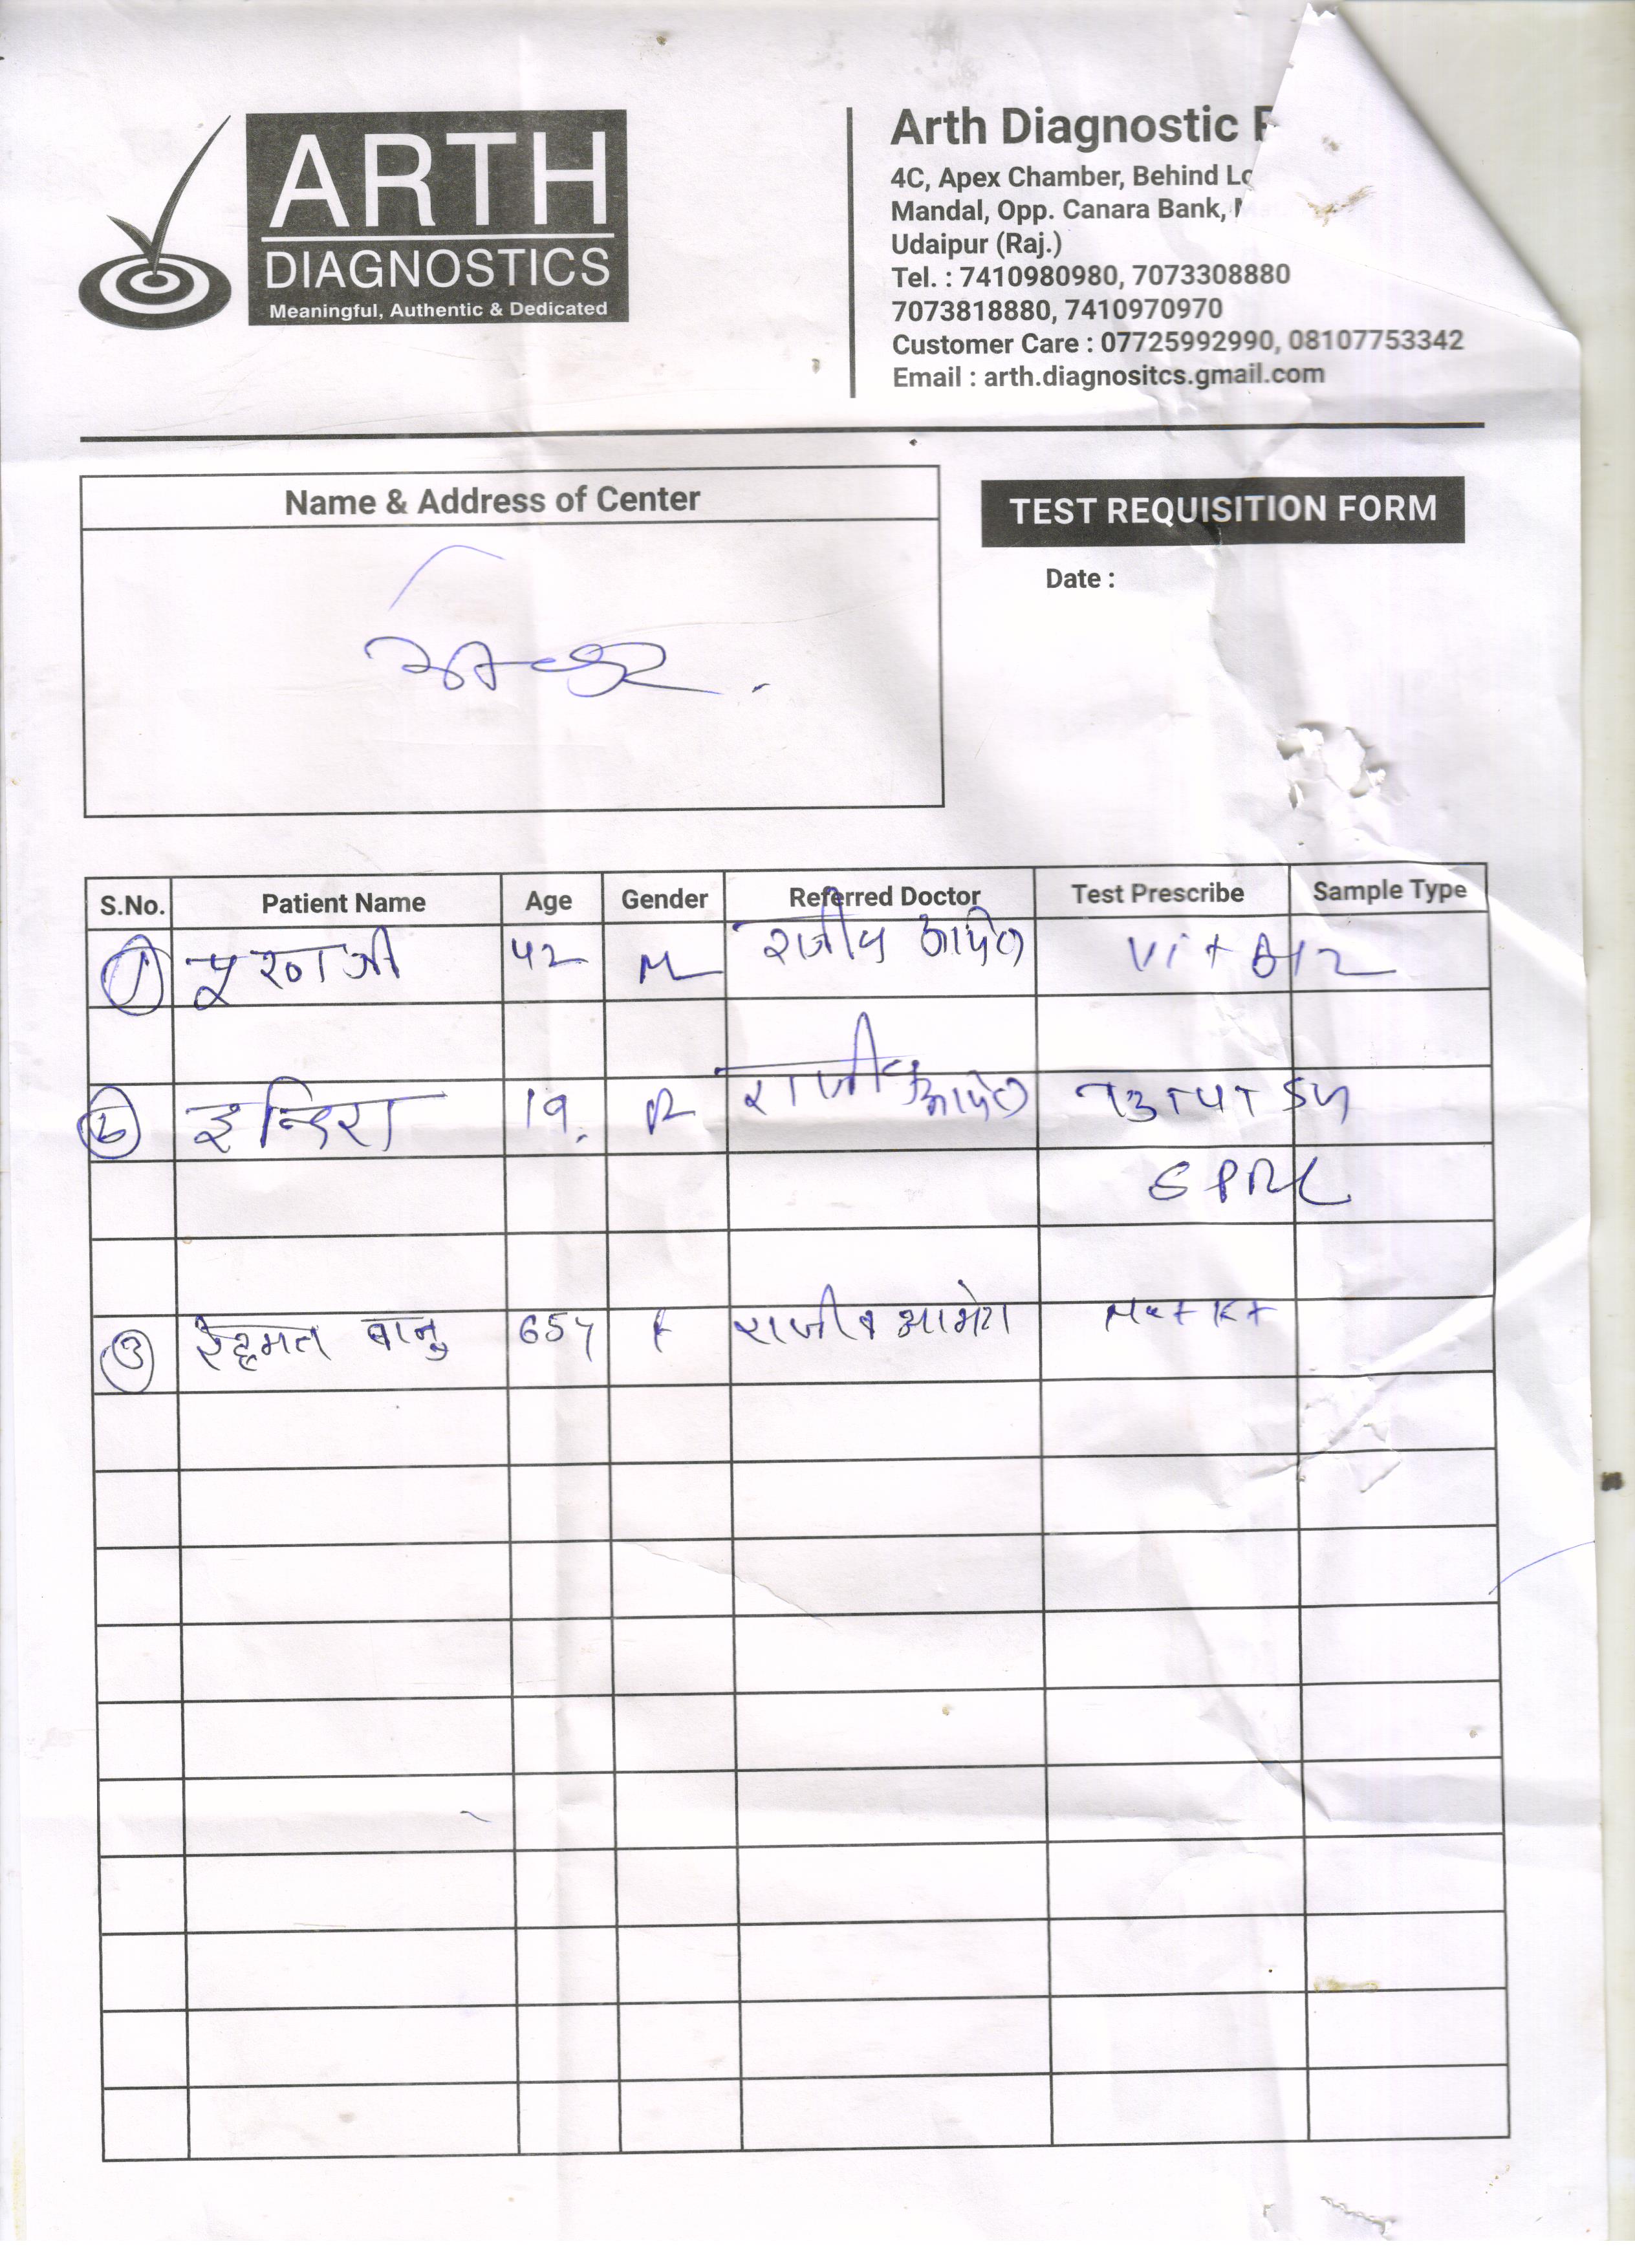 ARTH
DIAGNOSTICS
Meaningful, Authentic & Dedicated
Arth Diagnostic
4C, Apex Chamber, Behind
Mandal, Opp. Canara Bank,
Udaipur (Raj.)
Tel. : 7410980980, 7073308880
7073818880, 7410970970
Customer Care : 07725992990, 08107753342
Email : arth.diagnositcs.gmail.com
Name & Address of Center
TEST REQUISITION FORM
Date :
S.No. Patient Name Age Gender Referred Doctor Test Prescribe Sample Type
1 पूरणजी 42 M राजीव आमेटा Vit B12
2 इन्दिरा 19. राजीव आमेटा T3T4TSH
SPRL
3 रेहमत बानु 65y F राजीव आमेटा Na+ K+